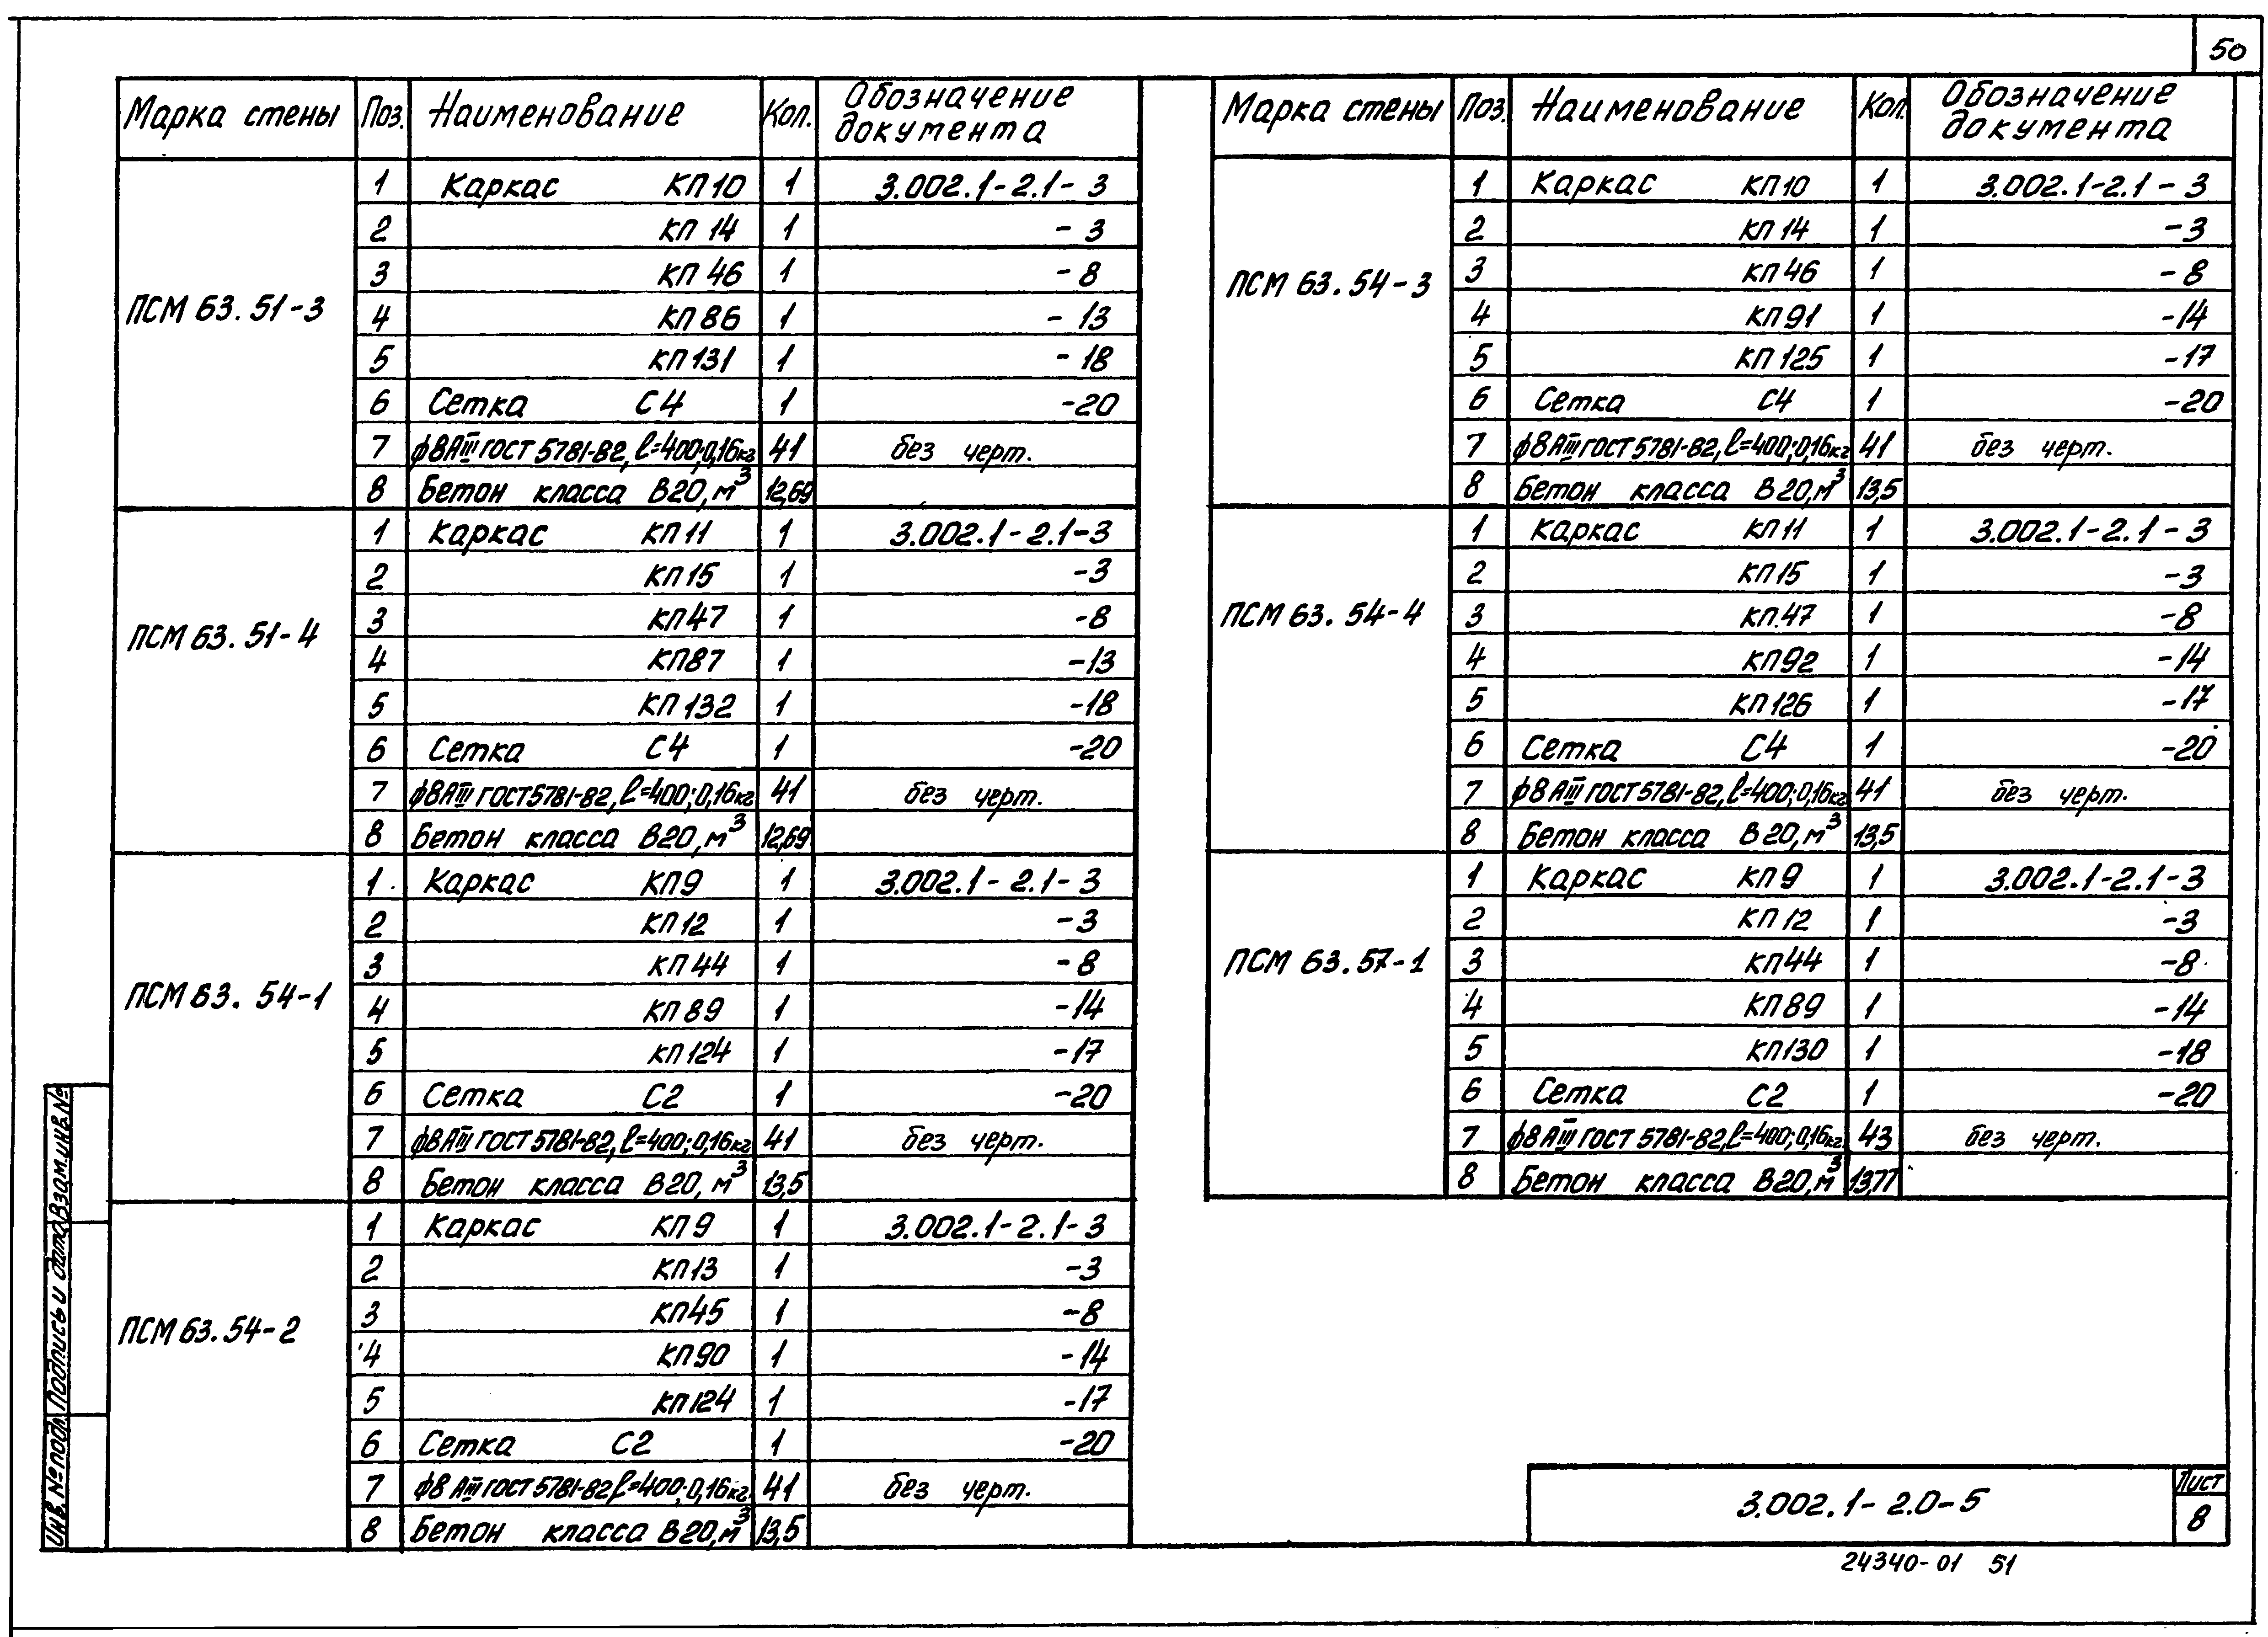 50
Марка стены Поз. Наименование Кол. Обозначение документа
ПСМ 63.51-3
1 Каркас КП10 1 3.002.1-2.1-3
2 КП14 1 -3
3 КП46 1 -8
4 КП86 1 -13
5 КП131 1 -18
6 Сетка С4 1 -20
7 ф8АIII ГОСТ 5781-82, ℓ=400; 0,16кг 41 без черт.
8 Бетон класса В20, м³ 12,69
ПСМ 63.51-4
1 Каркас КП11 1 3.002.1-2.1-3
2 КП15 1 -3
3 КП47 1 -8
4 КП87 1 -13
5 КП132 1 -18
6 Сетка С4 1 -20
7 ф8АIII ГОСТ 5781-82, ℓ=400; 0,16кг 41 без черт.
8 Бетон класса В20, м³ 12,69
ПСМ 63.54-1
1 Каркас КП9 1 3.002.1-2.1-3
2 КП12 1 -3
3 КП44 1 -8
4 КП89 1 -14
5 КП124 1 -17
6 Сетка С2 1 -20
7 ф8АIII ГОСТ 5781-82, ℓ=400; 0,16кг 41 без черт.
8 Бетон класса В20, м³ 13,5
ПСМ 63.54-2
1 Каркас КП9 1 3.002.1-2.1-3
2 КП13 1 -3
3 КП45 1 -8
4 КП90 1 -14
5 КП124 1 -17
6 Сетка С2 1 -20
7 ф8 АIII ГОСТ 5781-82, ℓ=400; 0,16кг. 41 без черт.
8 Бетон класса В20, м³ 13,5
Марка стены Поз. Наименование Кол. Обозначение документа
ПСМ 63.54-3
1 Каркас КП10 1 3.002.1-2.1-3
2 КП14 1 -3
3 КП46 1 -8
4 КП91 1 -14
5 КП125 1 -17
6 Сетка С4 1 -20
7 ф8АIII ГОСТ 5781-82, ℓ=400; 0,16кг 41 без черт.
8 Бетон класса В20, м³ 13,5
ПСМ 63.54-4
1 Каркас КП11 1 3.002.1-2.1-3
2 КП15 1 -3
3 КП47 1 -8
4 КП92 1 -14
5 КП126 1 -17
6 Сетка С4 1 -20
7 ф8 АIII ГОСТ 5781-82, ℓ=400; 0,16кг 41 без черт.
8 Бетон класса В20, м³ 13,5
ПСМ 63.57-1
1 Каркас КП9 1 3.002.1-2.1-3
2 КП12 1 -3
3 КП44 1 -8
4 КП89 1 -14
5 КП130 1 -18
6 Сетка С2 1 -20
7 ф8 АIII ГОСТ 5781-82, ℓ=400; 0,16кг. 43 без черт.
8 Бетон класса В20, м³ 13,77
Инв.№ подл. Подпись и дата Взам.инв.№
3.002.1-2.0-5
Лист
8
24340-01 51